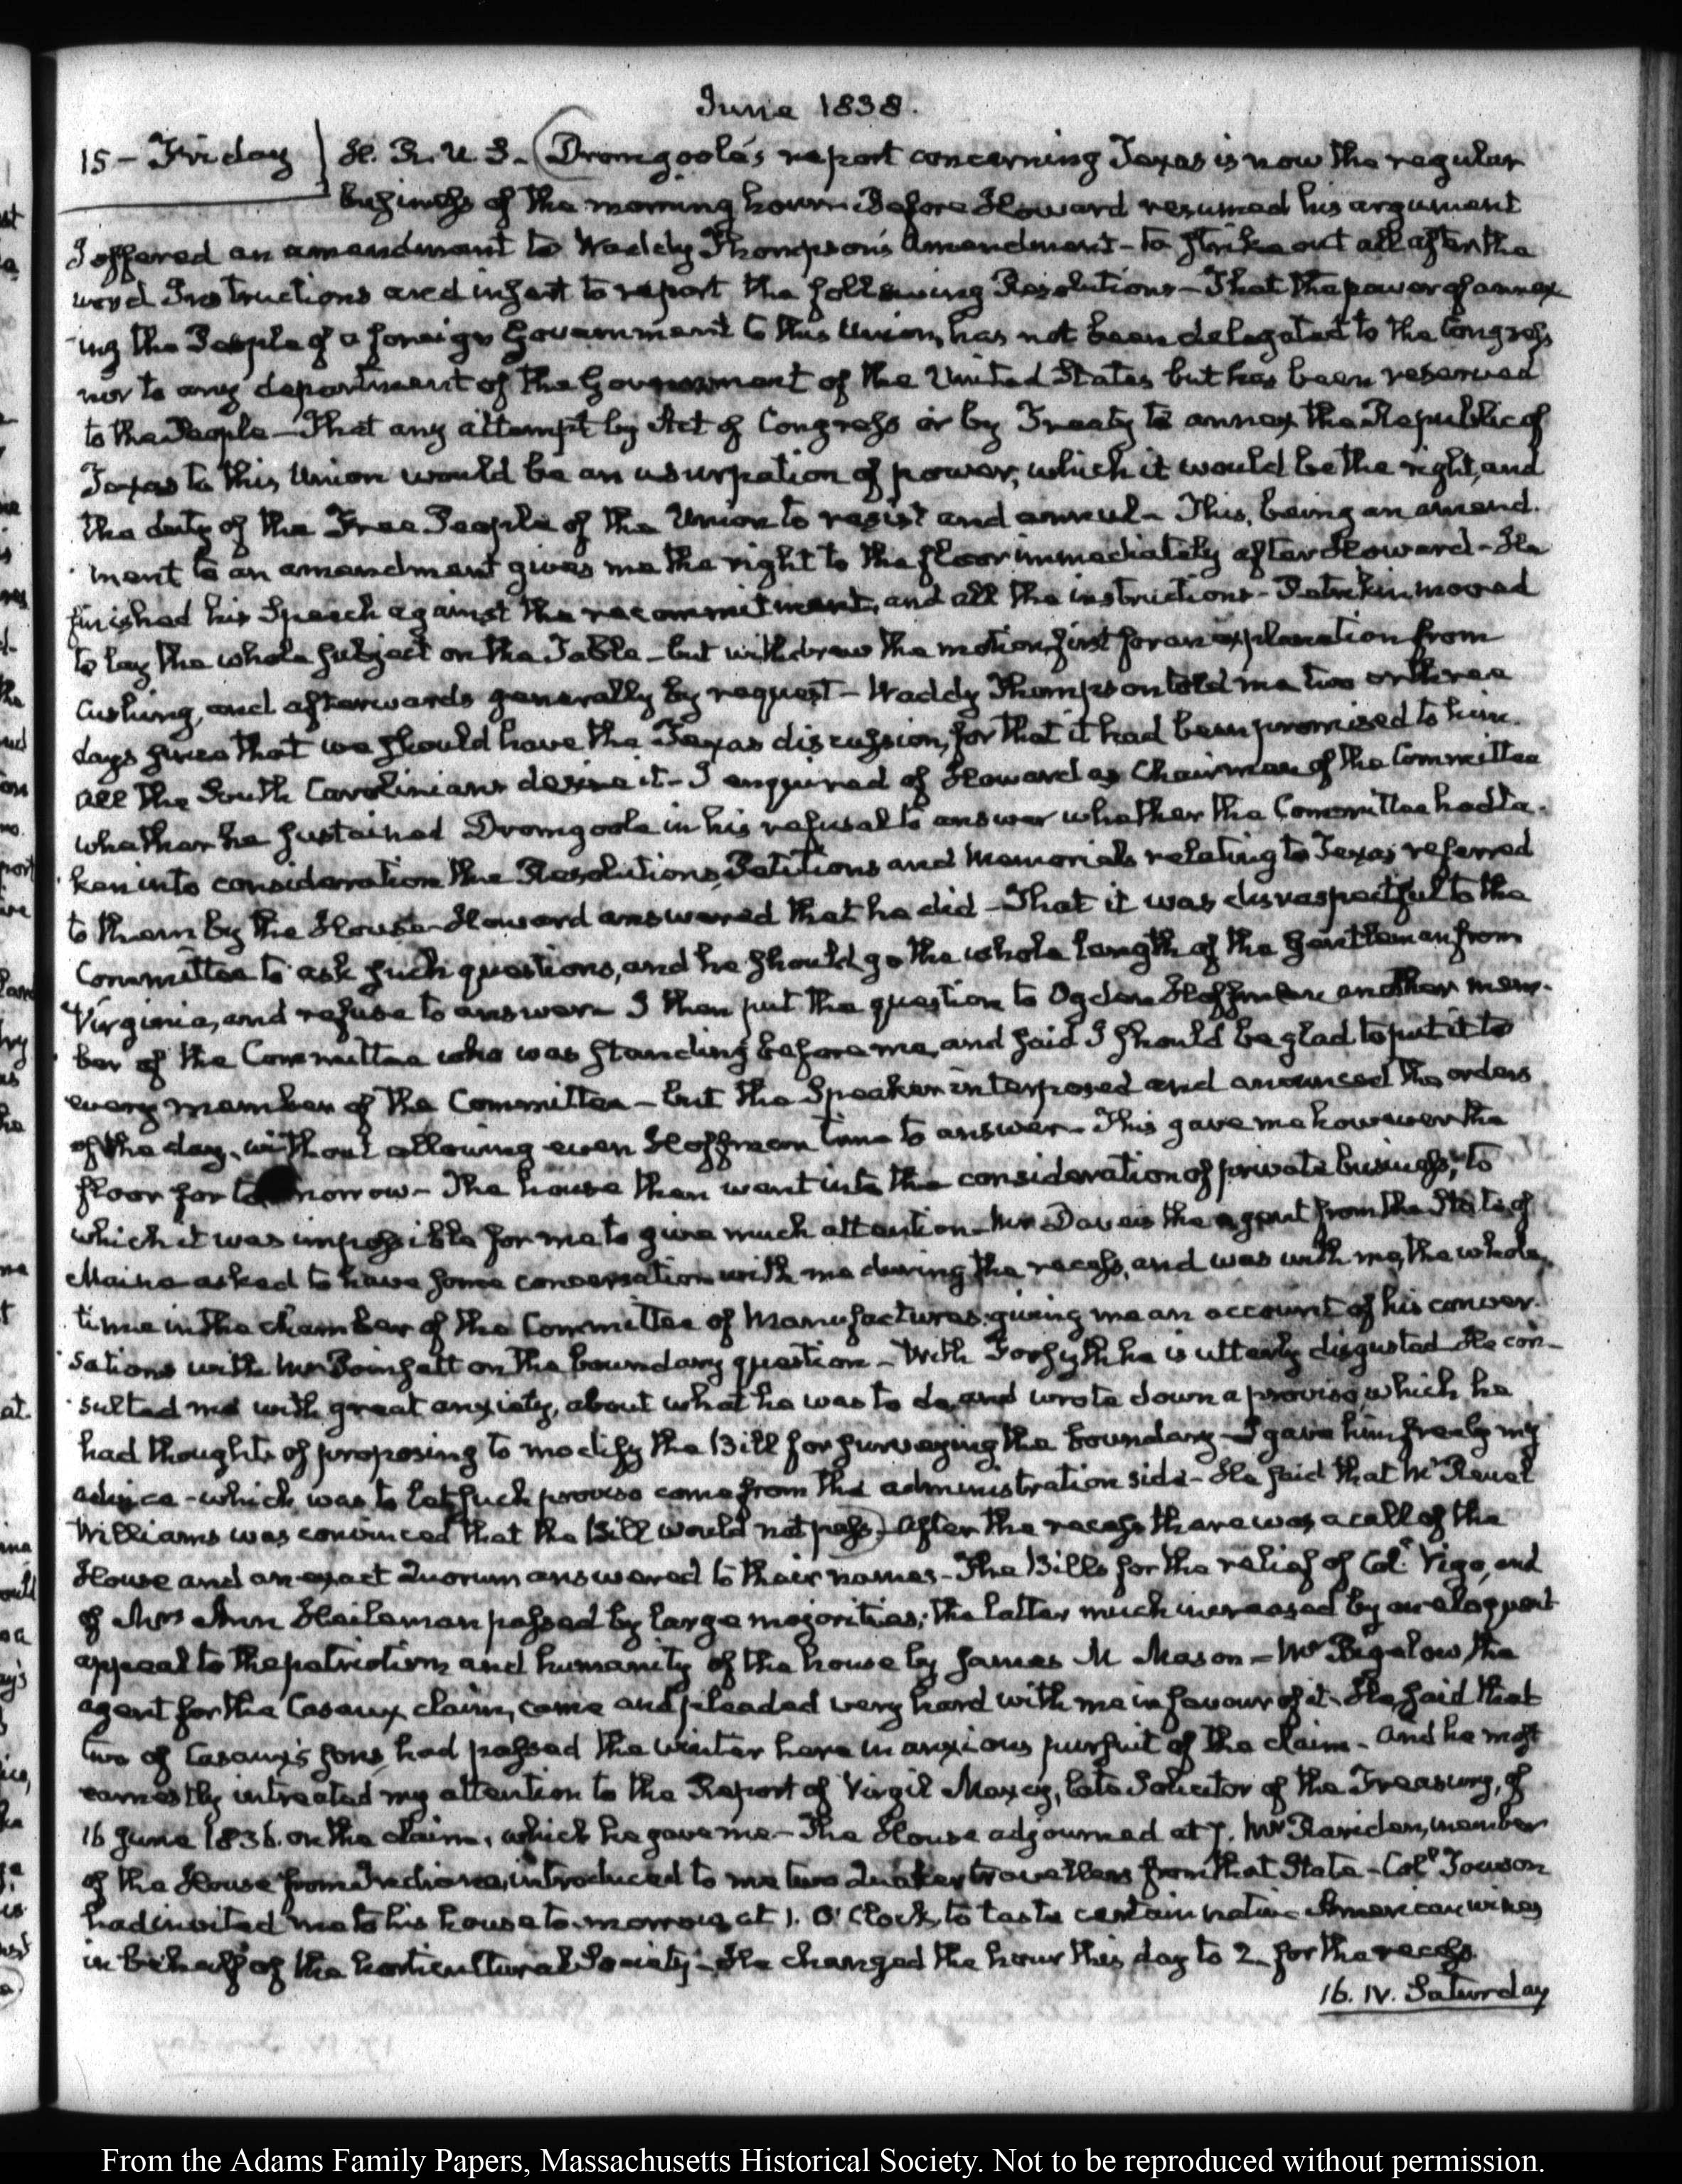 June 1838.
15 – Friday
H. R. U. S. – Dromgoole's report concerning Texas is now the regular
business of the morning hour – Before Howard resumed his argument
I offered an amendment to Waddy Thompson's Amendment – to strike out all after the
word Instructions and insert to report the following Resolutions – That the power of annex
ing the People of a foreign Government to this Union, has not been delegated to the Congress
nor to any department of the Government of the United States but has been reserved
to the People – That any attempt by Act of Congress or by Treaty to annex the Republic of
Texas to this Union would be an usurpation of power, which it would be the right, and
the duty of the Free People of the Union to resist and annul – This, being an amend.
ment to an amendment gives me the right to the floor immediately after Howard – He
finished his Speech against the recommitment, and all the instructions – Petrikin moved
to lay the whole subject on the Table – but withdrew the motion, first for an explanation from
Cushing, and afterwards generally by request – Waddy Thompson told me two or three
days since that we should have the Texas discussion, for that it had been promised to him.
All the South Carolinians desire it – I enquired of Howard as Chairman of the Committee
whether he sustained Dromgoole in his refusal to answer whether the Committee had ta-
ken into consideration the Resolutions, Petitions and Memorials relating to Texas referred
to them by the House – Howard answered that he did – That it was disrespectful to the
Committee to ask such questions, and he should go the whole length of the Gentleman from
Virginia, and refuse to answer – I then put the question to Ogden Hoffman another mem-
ber of the Committee who was standing before me, and said I should be glad to put it to
every member of the Committee – but the Speaker interposed and anounced the orders
of the day, without allowing even Hoffman time to answer – This gave me however the
floor for to morrow – The house then went into the consideration of private business, to
which it was impossible for me to give much attention – Mr Daveis the agent from the State of
Maine asked to have some conversation with me during the recess, and was with me, the whole
time in the chamber of the Committee of Manufactures, giving me an account of his conver.
sations with Mr Poinsett on the boundary question – With Forsyth he is utterly disgusted – He con-
sulted me with great anxiety, about what he was to do, and wrote down a proviso, which he
had thoughts of proposing to modify the Bill for surveying the boundary – I gave him freely my
advice – which was to let such proviso come from the administration side – He said that Mr Reuel
Williams was convinced that the Bill would not pass – After the recess there was a call of the
House and an exact Quorum answered to their names – The Bills for the relief of Col. Vigo, and
of Mrs Ann Heileman passed by large majorities; the latter much increased by an eloquent
appeal to the patriotism and humanity of the house by James M Mason – Mr Bigelow, the
agent for the Casaux claim, came and pleaded very hard with me in favour of it. He said that
two of Casaux's sons, had passed the winter here in anxious pursuit of the claim – and he most
earnestly intreated my attention to the Report of Virgil Maxcy, late Solicitor of the Treasury, of
16 June 1836. on the claim, which he gave me – The House adjourned at 7. Mr Rariden, member
of the House from Indiana, introduced to me two Quaker travellers from that State – Coll Towson
had invited me to his house to-morrow at 1. O'Clock, to taste certain native American wines
in behalf of the horticultural Society – He changed the hour this day to 2. for the recess.
16. IV. Saturday
From the Adams Family Papers, Massachusetts Historical Society. Not to be reproduced without permission.